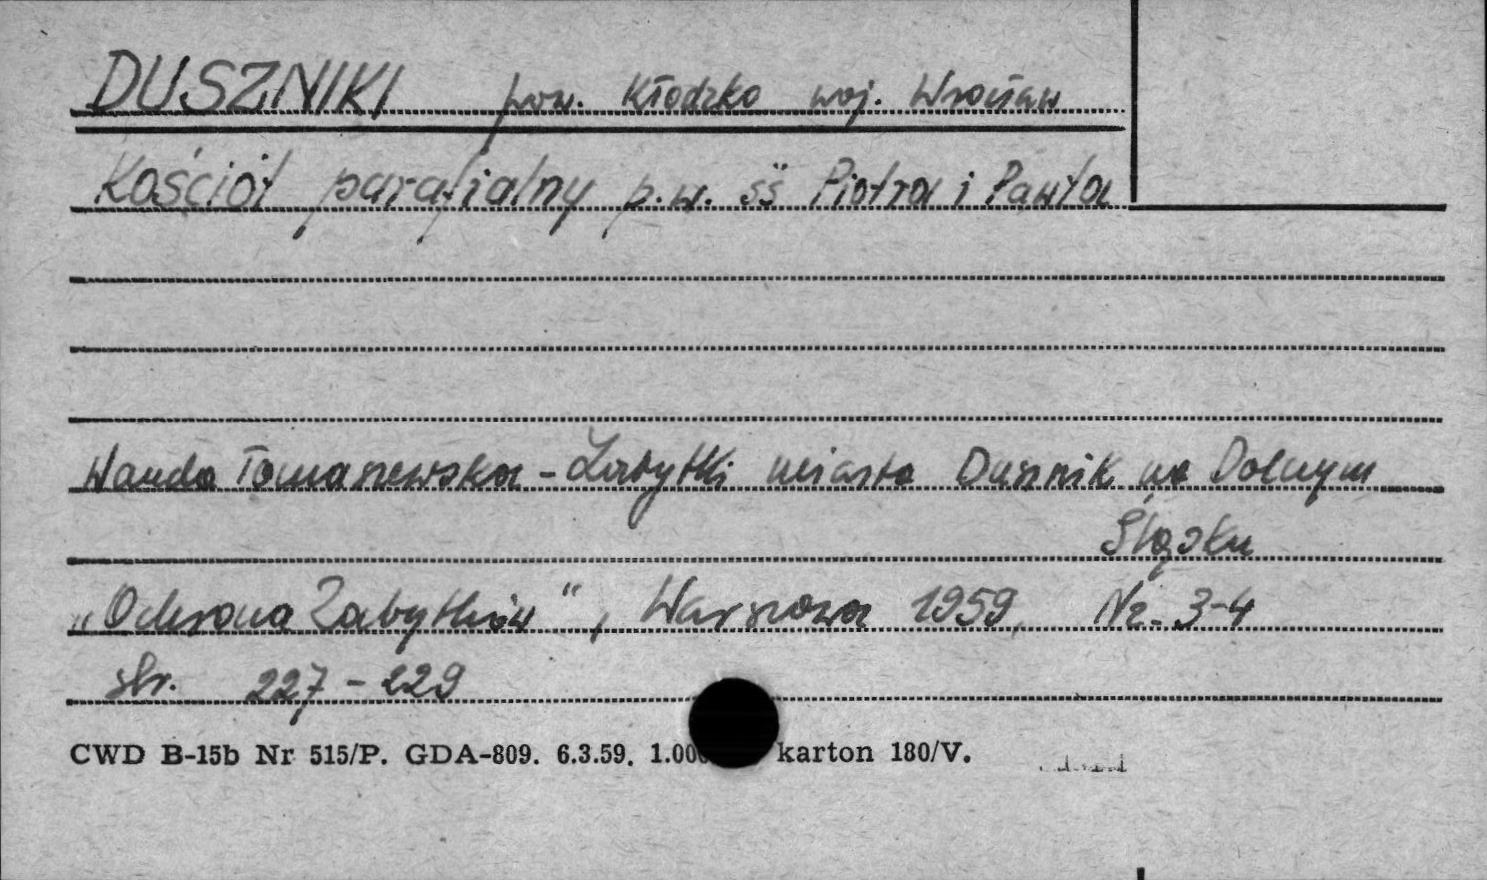 DUSZNIKI pow. Kłodzko woj. Wrocław
Kościół parafialny p.w. śś Piotra i Pawła
Wanda Tomaszewska - Zabytki miasta Dusznik na Dolnym
Śląsku
„Ochrona Zabytków", Warszawa 1959, Nr. 3-4
str. 227-229
CWD B-15b Nr 515/P. GDA-809. 6.3.59. 1.00 karton 180/V.